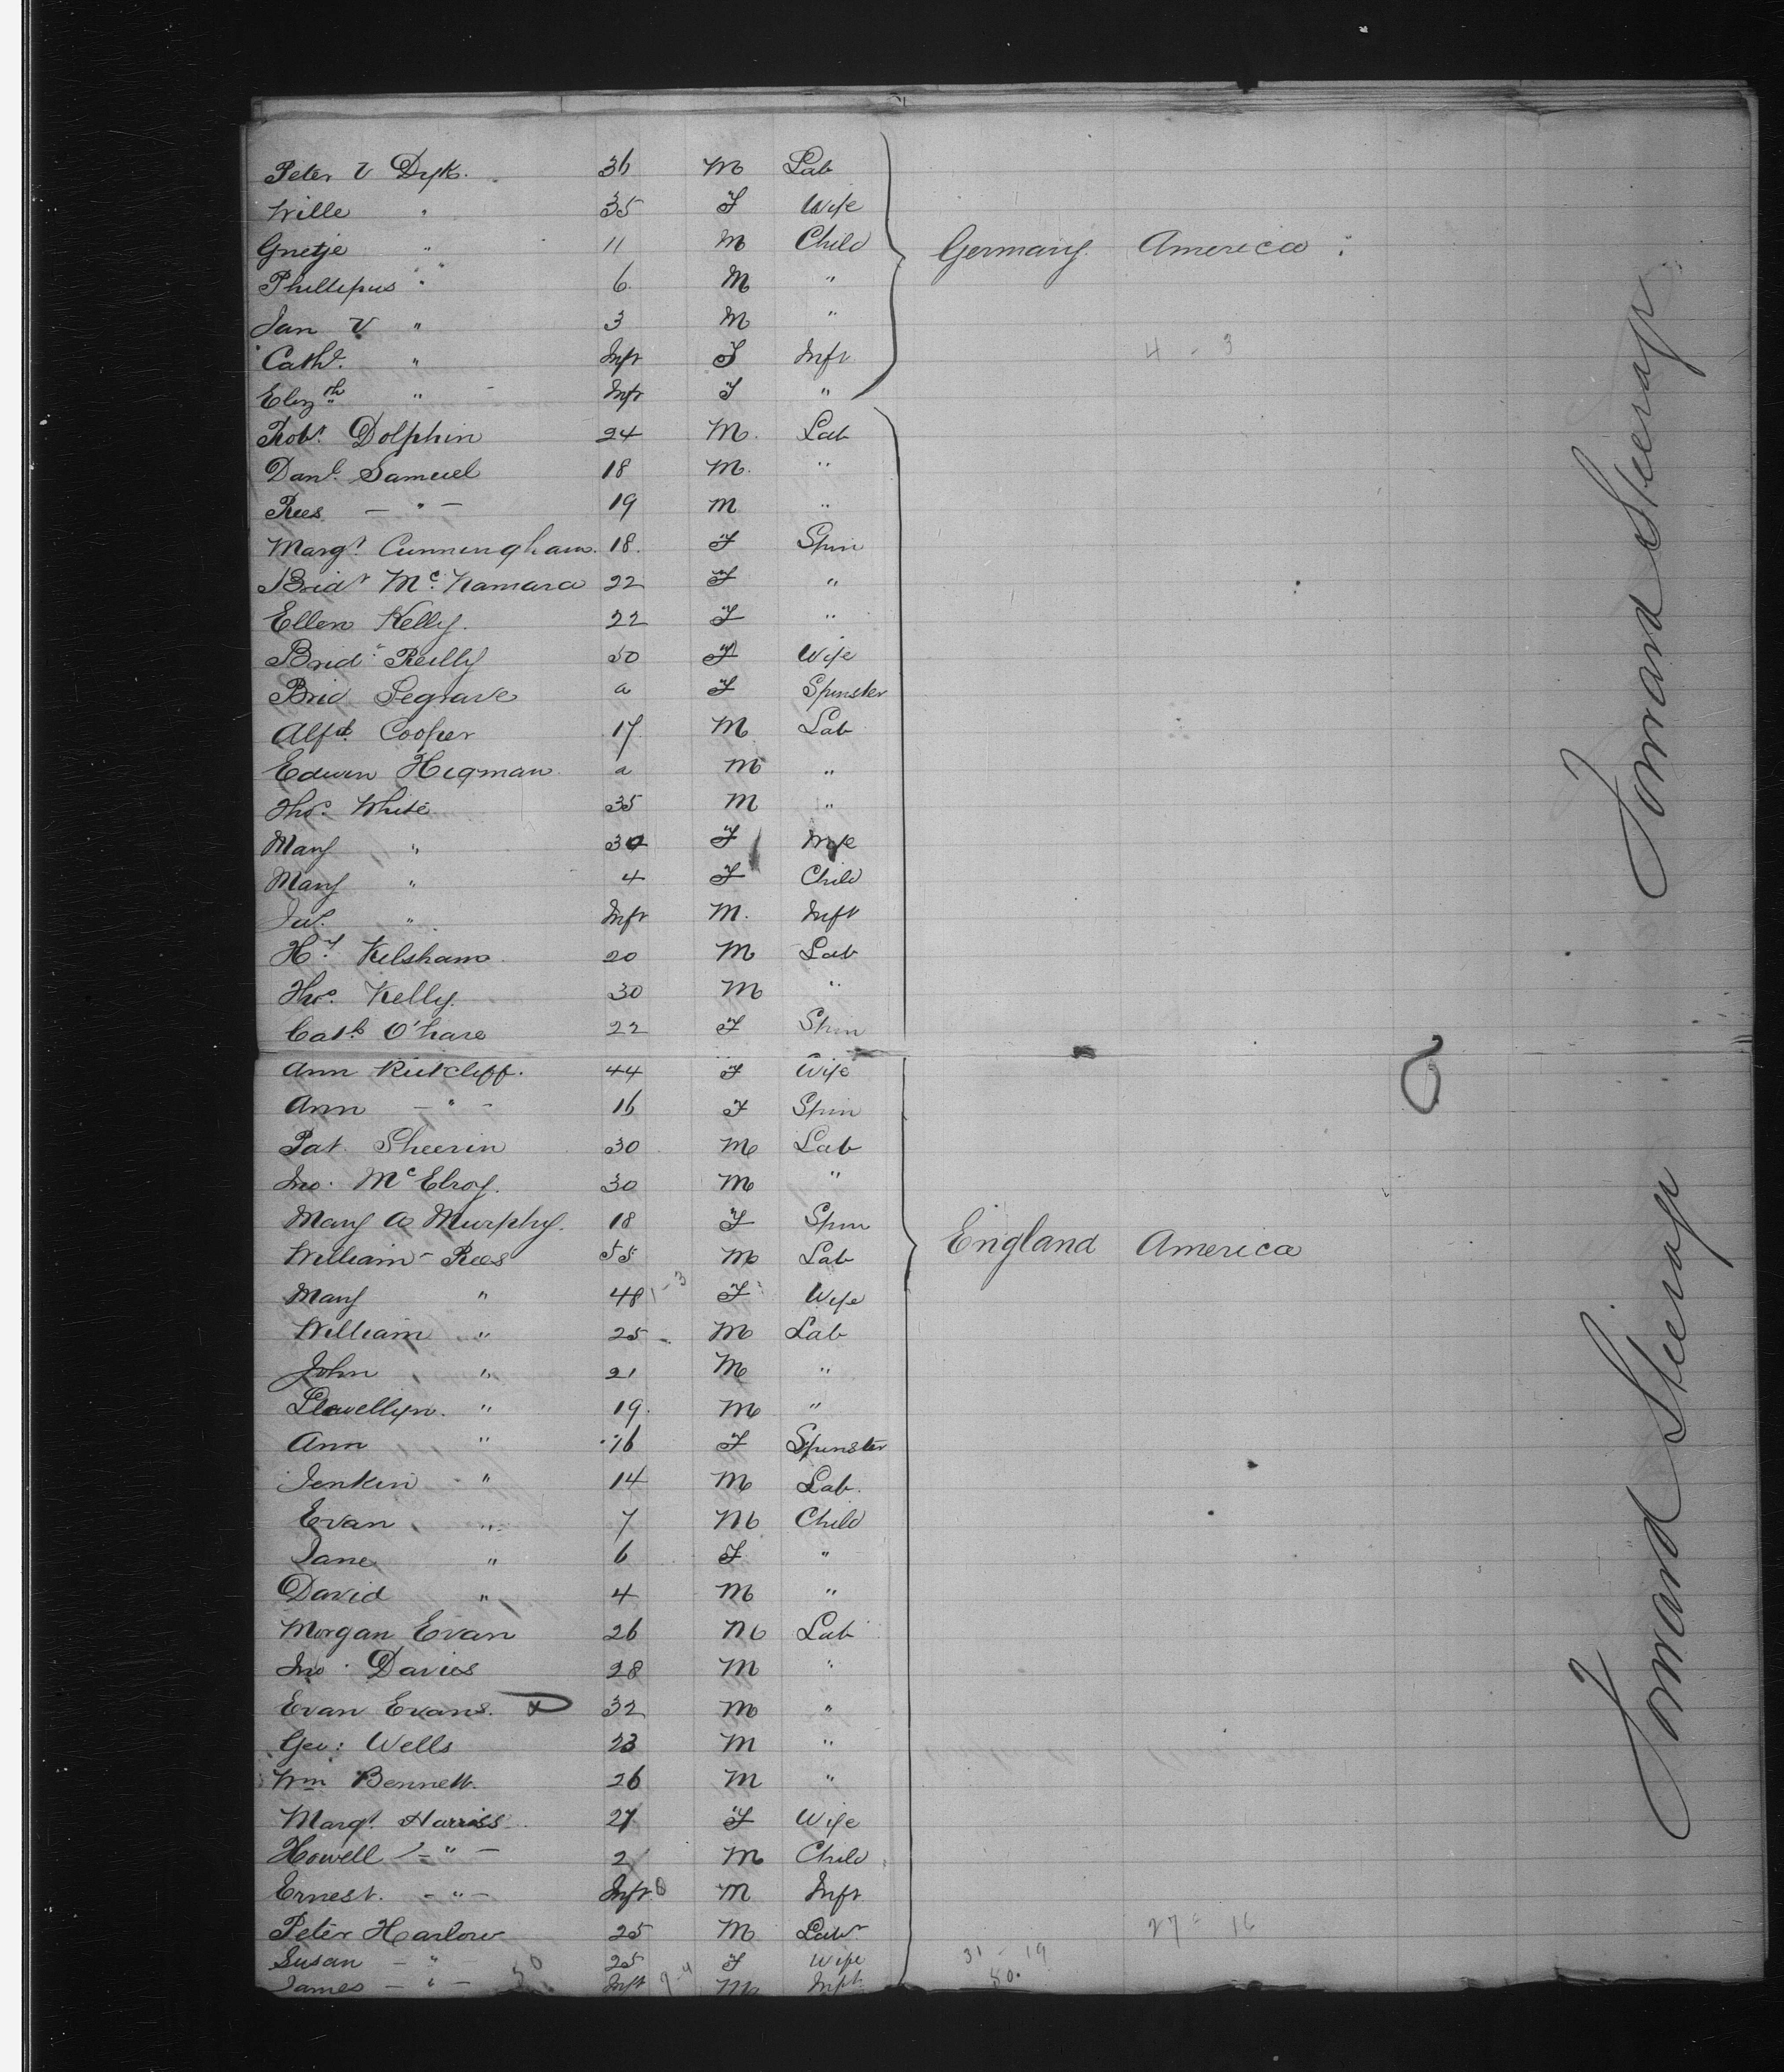 Peter V Dyk. 36 M Lab
Wille " 35 F Wife
Grietje " 11 M Child Germany America
Phillipus " 6 M "
Jan V " 3 M "
Cath. " Inft F Inft 4 - 3
Elizth " Inft F "
Robt. Dolphin 24 M. Lab
Danl. Samuel 18 M. "
Rees — " — 19 M "
Margt. Cunningham. 18. F Spin
Bridt Mc. Namara 22 F "
Ellen Kelly. 22 F "
Brid. Reilly 50 F Wife
Brid Segrave a F Spinster
Alfd. Cooper 17 M Lab
Edwin Higman a M "
Thos. White 35 M "
Mary " 30 F Wife
Mary " 4 F Child
Jas. " Inft M. Inft
Hy Kelsham 20 M Lab
Thos. Kelly. 30 M "
Cath O'hare 22 F Spin
Ann Rutcliff. 44 F Wife
Ann — " — 16 F Spin
Pat Sheerin 30 M Lab
Jno. McElroy. 30 M "
Mary A Murphy. 18 F Spin
William Rees 55 M Lab England America
Mary " 48 F Wife
William " 25 M Lab
John " 21 M "
Llewellyn. " 19. M "
Ann " 16 F Spinster
Jenkin " 14 M Lab.
Evan " 7 M Child
Jane " 6 F "
David " 4 M "
Morgan Evan 26 M Lab
Jno. Davies 28 M "
Evan Evans. 32 M "
Geo: Wells 23 M "
Wm Bennett. 26 M "
Margt. Harriss 27 F Wife
Howell — " — 2 M Child
Ernest. — " — Inft M Inft
Peter Harlow 25 M Labr 27 = 16
Susan — " 25 F Wife 31 - 19
James — " — 50 Inft 9-4 M Inft 50.
Forward Steerage
Forward Steerage